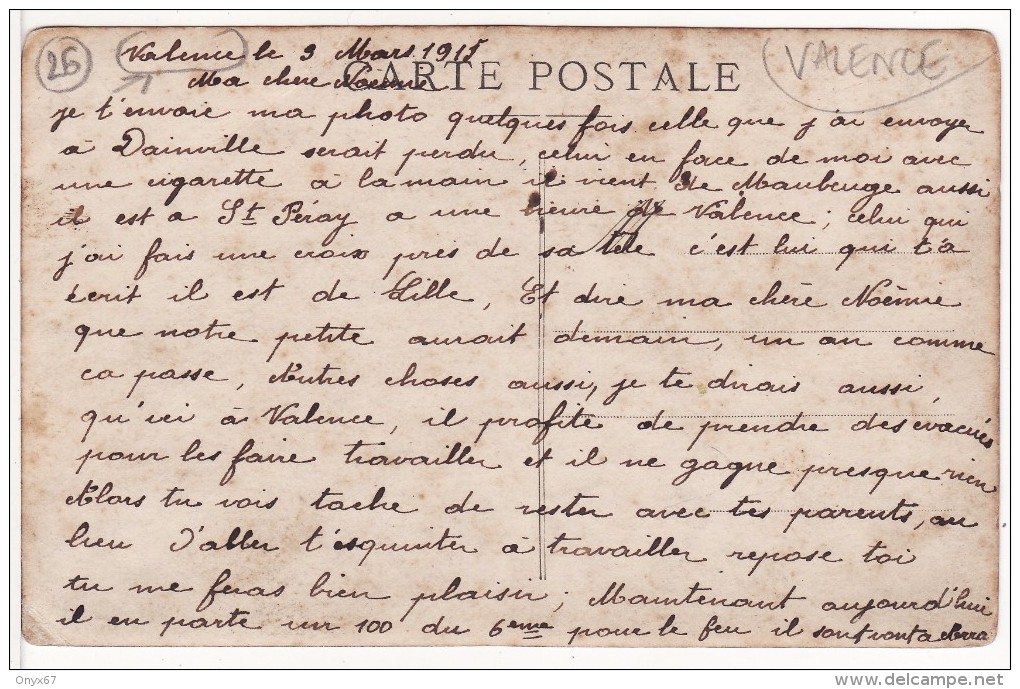 26
Valence le 3 Mars 1915
VALENCE
Ma chère Noémie
CARTE POSTALE
je t'envoie ma photo quelques fois celle que j'ai envoyé
à Dainville serait perdu, celui en face de moi avec
une cigarette à la main il vient de Maubeuge aussi
il est a St Péray a une heure de Valence; celui qui
j'ai fais une croix près de sa tête c'est lui qui t'a
écrit il est de Lille, Et dire ma chère Noémie
que notre petite aurait demain, un an comme
ca passe, Autres choses aussi, je te dirais aussi,
qu'ici à Valence, il profite de prendre des évacués
pour les faire travailler et il ne gagne presque rien
Alors tu vois tache de rester avec tes parents, au
lieu d'aller t'esquinter à travailler repose toi
tu me feras bien plaisir; Maintenant aujourd'hui
il en parte un 100 du 6eme pour le feu il sont vont a Arra
Onyx67
www.delcampe.net